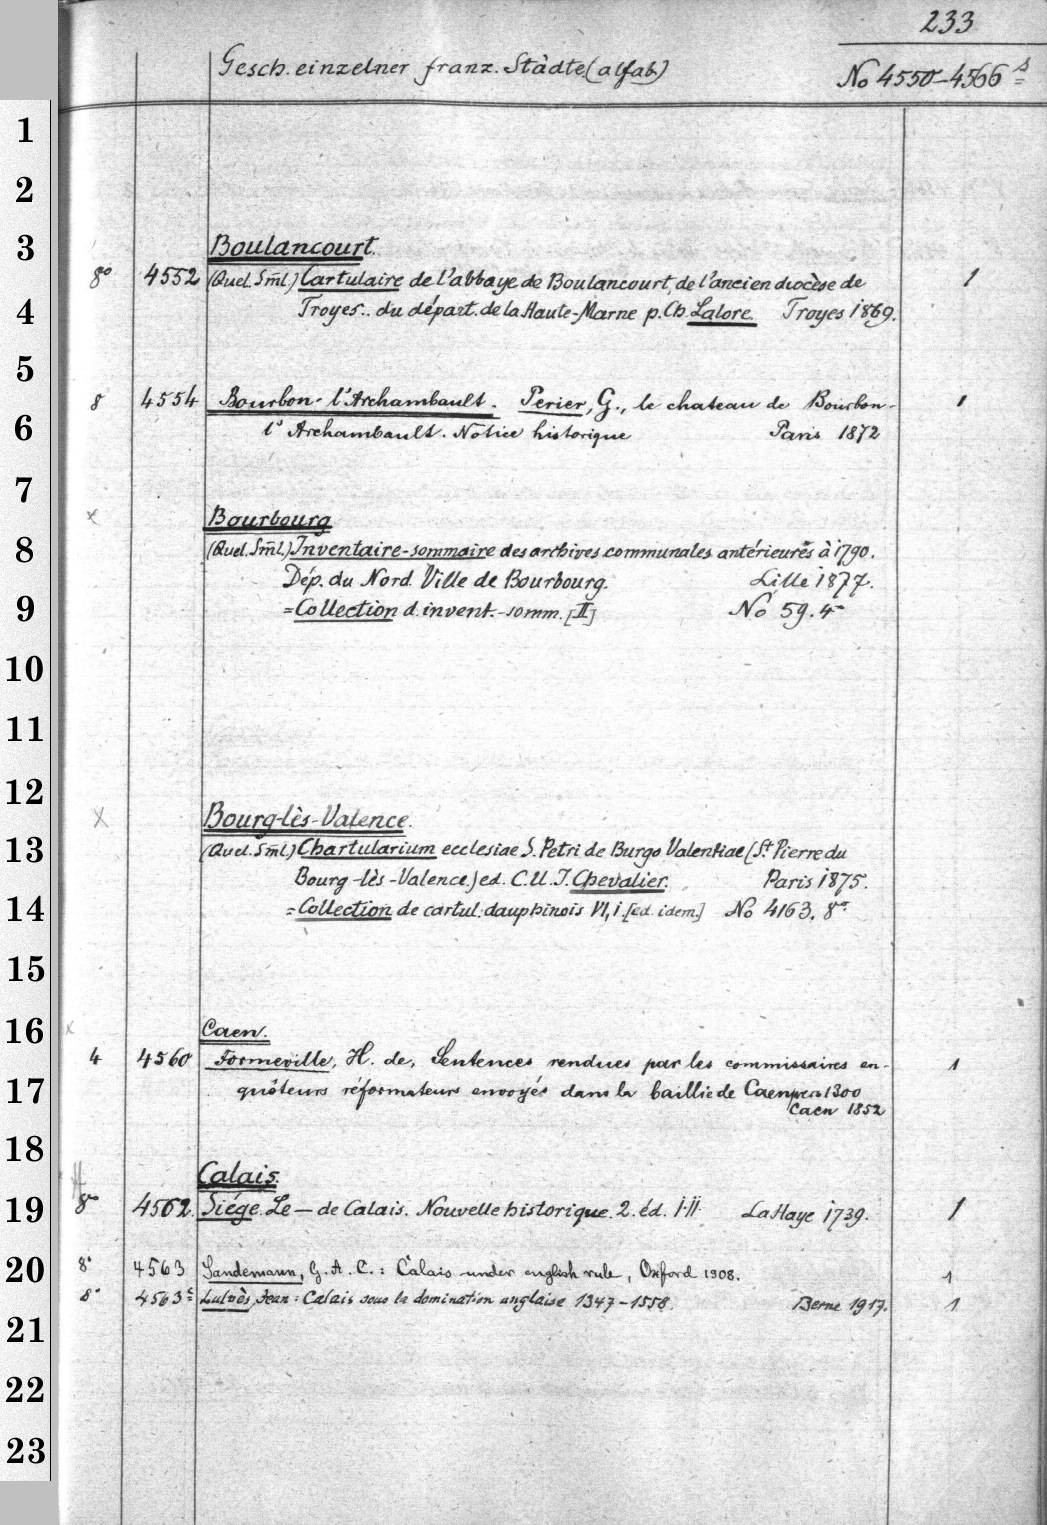 233
Gesch. einzelner franz. Städte (alfab.)
No 4550-4566 s
1
2
3
Boulancourt.
8° 4552 (Quel. Sml.) Cartulaire de l'abbaye de Boulancourt, de l'ancien diocèse de 1
4
Troyes.. du départ. de la Haute-Marne p. Ch. Lalore. Troyes 1869.
5
8 4554 Bourbon-l'Archambault. Perier, G., le chateau de Bourbon- 1
6
l'Archambault. Notice historique Paris 1872
7
x Bourbourg
8
(Quel. Sml.) Inventaire-sommaire des archives communales antérieures à 1790.
Dép. du Nord. Ville de Bourbourg. Lille 1877.
9
=Collection d. invent.-somm. [II] No 59. 4°
10
11
12
x Bourg-lès-Valence.
13
(Quel. Sml.) Chartularium ecclesiae S. Petri de Burgo Valentiae (St Pierre du
Bourg-lès-Valence.) ed. C. U. J. Chevalier. Paris 1875.
14
=Collection de cartul. dauphinois VI, 1. [ed. idem.] No 4163. 8°
15
16
x Caen.
4 4560 Formeville, H. de, Sentences rendues par les commissaires en- 1
17
quêteurs réformateurs envoyés dans la baillie de Caen vers 1300
Caen 1852
18
Calais.
19
8° 4562. Siége. Le — de Calais. Nouvelle historique. 2. éd. I.II. La Haye 1739. 1
20
8° 4563 Sandemann, G. A. C.: Calais under english rule, Oxford 1908. 1
8° 4563 c Lulvès, Jean: Calais sous la domination anglaise 1347-1558. Berne 1917. 1
21
22
23